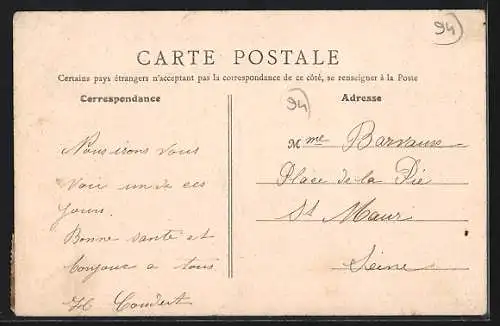 94
CARTE POSTALE
Certains pays étrangers n'acceptant pas la correspondance de ce côté, se renseigner à la Poste
Correspondance
Nous irons vous
voir un de ces
jours.
Bonne sante et
bonjour a tous
H Coudert
94
Adresse
Mme Barvaux
Place de la Pie
St Maur
Seine